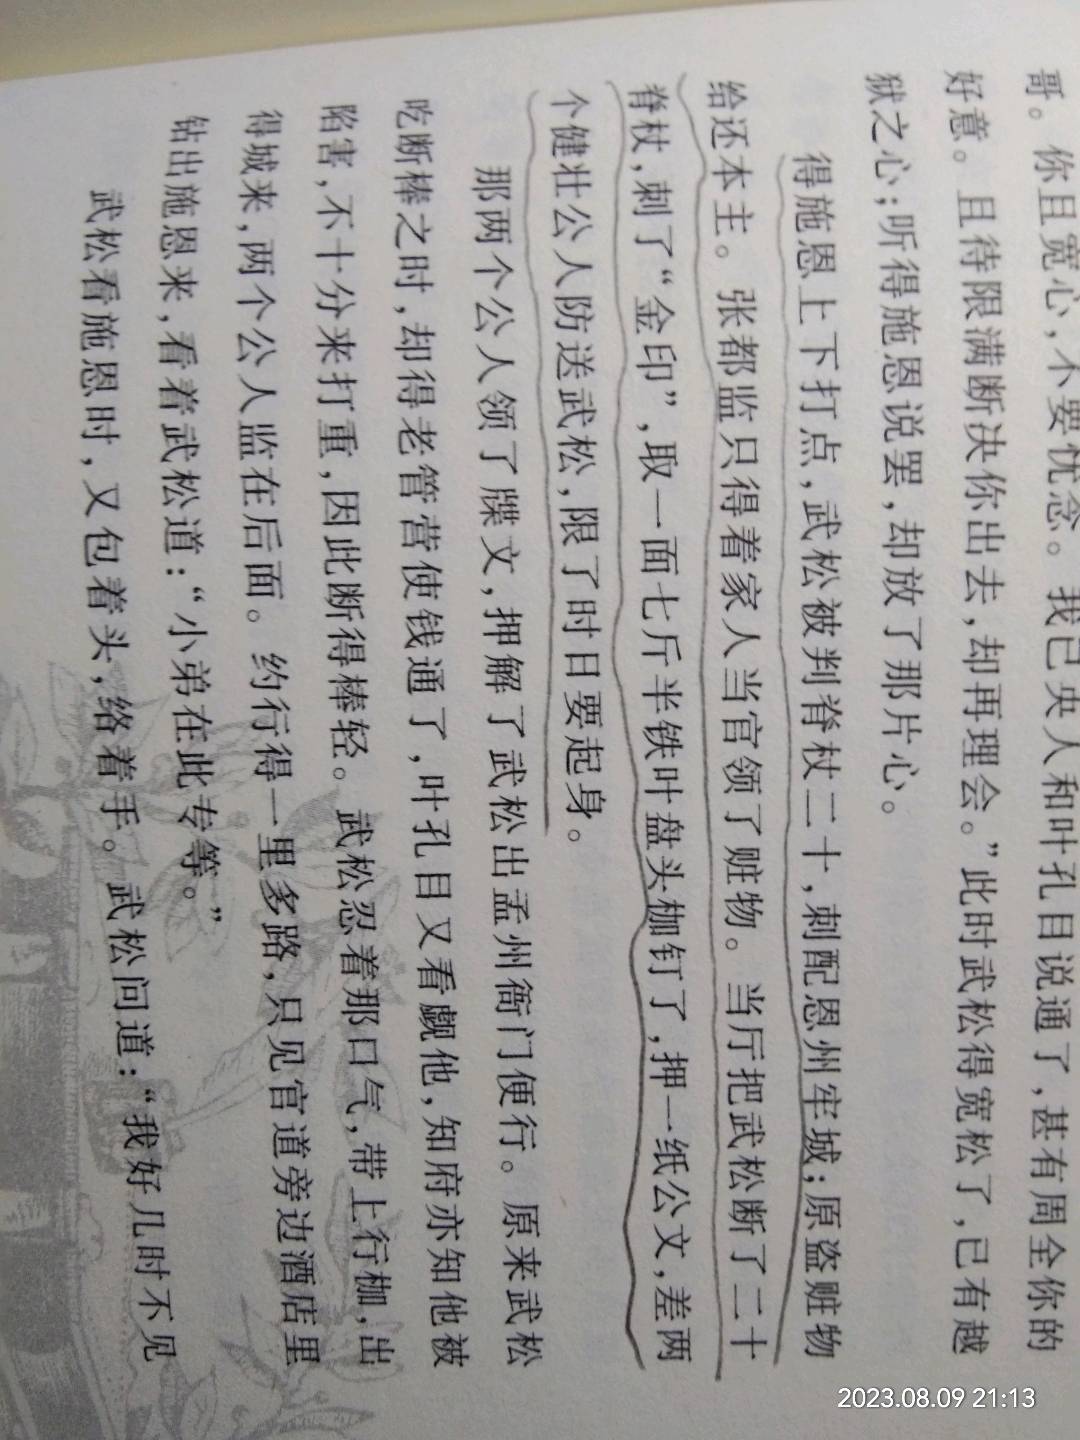 哥。你且宽心，不要忧念。我已央人和叶孔目说通了，甚有周全你的
好意。且待限满断决你出去，却再理会。”此时武松得宽松了，已有越
狱之心；听得施恩说罢，却放了那片心。
得施恩上下打点，武松被判脊杖二十，刺配恩州牢城；原盗赃物
给还本主。张都监只得着家人当官领了赃物。当厅把武松断了二十
脊杖，刺了“金印”，取一面七斤半铁叶盘头枷钉了，押一纸公文，差两
个健壮公人防送武松，限了时日要起身。
那两个公人领了牒文，押解了武松出孟州衙门便行。原来武松
吃断棒之时，却得老管营使钱通了，叶孔目又看觑他，知府亦知他被
陷害，不十分来打重，因此断得棒轻。武松忍着那口气，带上行枷，出
得城来，两个公人监在后面。约行得一里多路，只见官道旁边酒店里
钻出施恩来，看着武松道：“小弟在此专等。”
武松看施恩时，又包着头，络着手。武松问道：“我好几时不见
2023.08.09 21:13